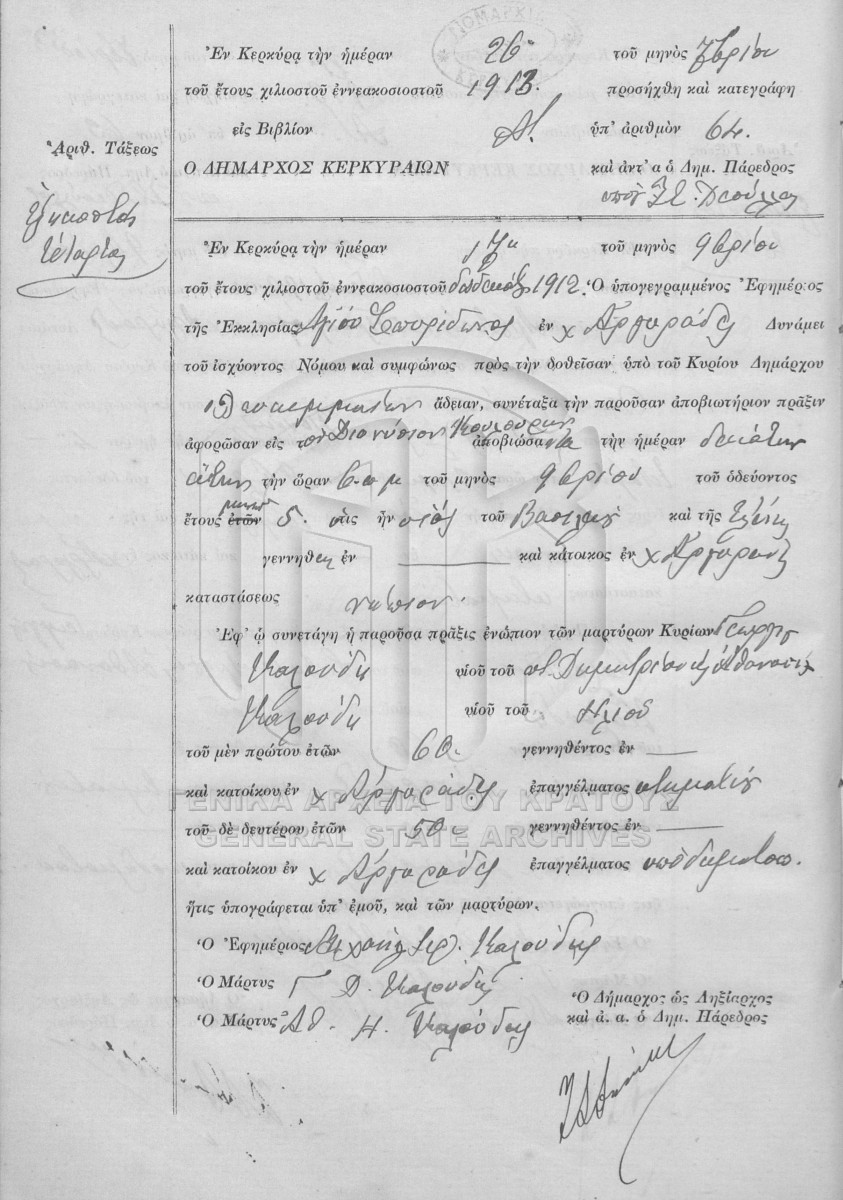 ΝΟΜΑΡΧΙΑ
Ἐν Κερκύρᾳ τὴν ἡμέραν 26 τοῦ μηνὸς 7βρίου
τοῦ ἔτους χιλιοστοῦ ἐννεακοσιοστοῦ 1913. προσήχθη καὶ κατεγράφη
εἰς Βιβλίον Α. ὑπ' ἀριθμὸν 64.
Ἀριθ. Τάξεως
Ο ΔΗΜΑΡΧΟΣ ΚΕΡΚΥΡΑΙΩΝ καὶ ἀντ' α ὁ Δημ. Πάρεδρος
Ἑκατοστὸς
Ἐν Κερκύρᾳ τὴν ἡμέραν 17 τοῦ μηνὸς 9βρίου
τοῦ ἔτους χιλιοστοῦ ἐννεακοσιοστοῦ δωδεκάτου 1912. Ὁ ὑπογεγραμμένος Ἐφημέριος
τῆς Ἐκκλησίας Ἁγίου Σπυρίδωνος ἐν χ Ἀργυράδες Δυνάμει
τοῦ ἰσχύοντος Νόμου καὶ συμφώνως πρὸς τὴν δοθεῖσαν ὑπὸ τοῦ Κυρίου Δημάρχου
ἄδειαν, συνέταξα τὴν παροῦσαν ἀποβιωτήριον πρᾶξιν
ἀφορῶσαν εἰς τὸν Διονύσιον ἀποβιώσαντα τὴν ἡμέραν δεκάτην
τὴν ὥραν 6 π μ τοῦ μηνὸς 9βρίου τοῦ ὁδεύοντος
ἔτους ἐτῶν μηνῶν 5. ὅστις ἦν υἱὸς τοῦ Βασιλείου καὶ τῆς Ἑλένης
γεννηθεὶς ἐν — καὶ κάτοικος ἐν χ Ἀργυράδες
καταστάσεως νήπιον.
Ἐφ' ᾧ συνετάγη ἡ παροῦσα πρᾶξις ἐνώπιον τῶν μαρτύρων Κυρίων Γεωργίου
Καλούδη υἱοῦ τοῦ ποτ. Δημητρίου κ Ἀθανασίου
Καλούδη υἱοῦ τοῦ Ηλιού
τοῦ μὲν πρώτου ἐτῶν 60. γεννηθέντος ἐν —
καὶ κατοίκου ἐν χ Ἀργυράδες ἐπαγγέλματος κτηματίου
ΓΕΝΙΚΑ ΑΡΧΕΙΑ ΤΟΥ ΚΡΑΤΟΥΣ
τοῦ δὲ δευτέρου ἐτῶν 50 γεννηθέντος ἐν —
GENERAL STATE ARCHIVES
καὶ κατοίκου ἐν χ Ἀργυράδες ἐπαγγέλματος ὑποδηματοπ.
ἥτις ὑπογράφεται ὑπ' ἐμοῦ, καὶ τῶν μαρτύρων.
Ὁ Ἐφημέριος Μιχαὴλ Ιερ. Καλούδης
Ὁ Μάρτυς Γ Δ. Καλούδης
Ὁ Δήμαρχος ὡς Ληξίαρχος
Ὁ Μάρτυς Ἀθ. Η. Καλούδης καὶ ἀ. α. ὁ Δημ. Πάρεδρος